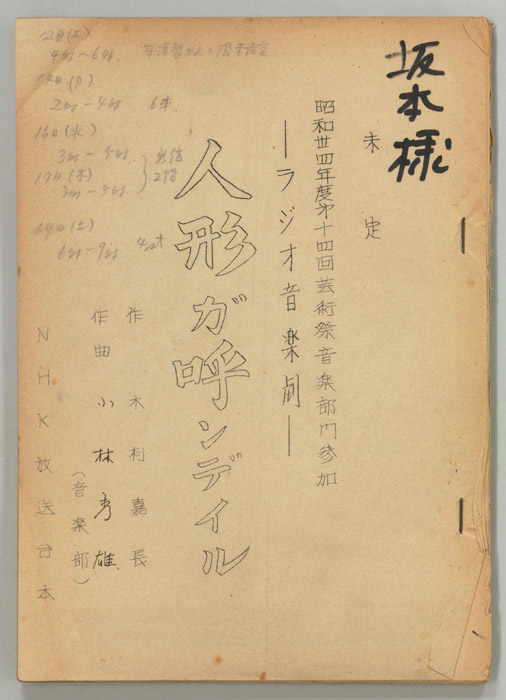 坂本様
未定
昭和卅四年度第十四回芸術祭音楽部門参加
―ラジオ音楽劇―
人形ガ呼ンデイル
作 木村嘉長
作曲 小林秀雄
(音楽部)
NHK放送台本
12日(土)
4時~6時
14日(月)
2時-4時 6本
16日(水)
3時-5時
17日(木)
3時-5時
19日(土)
6時-9時